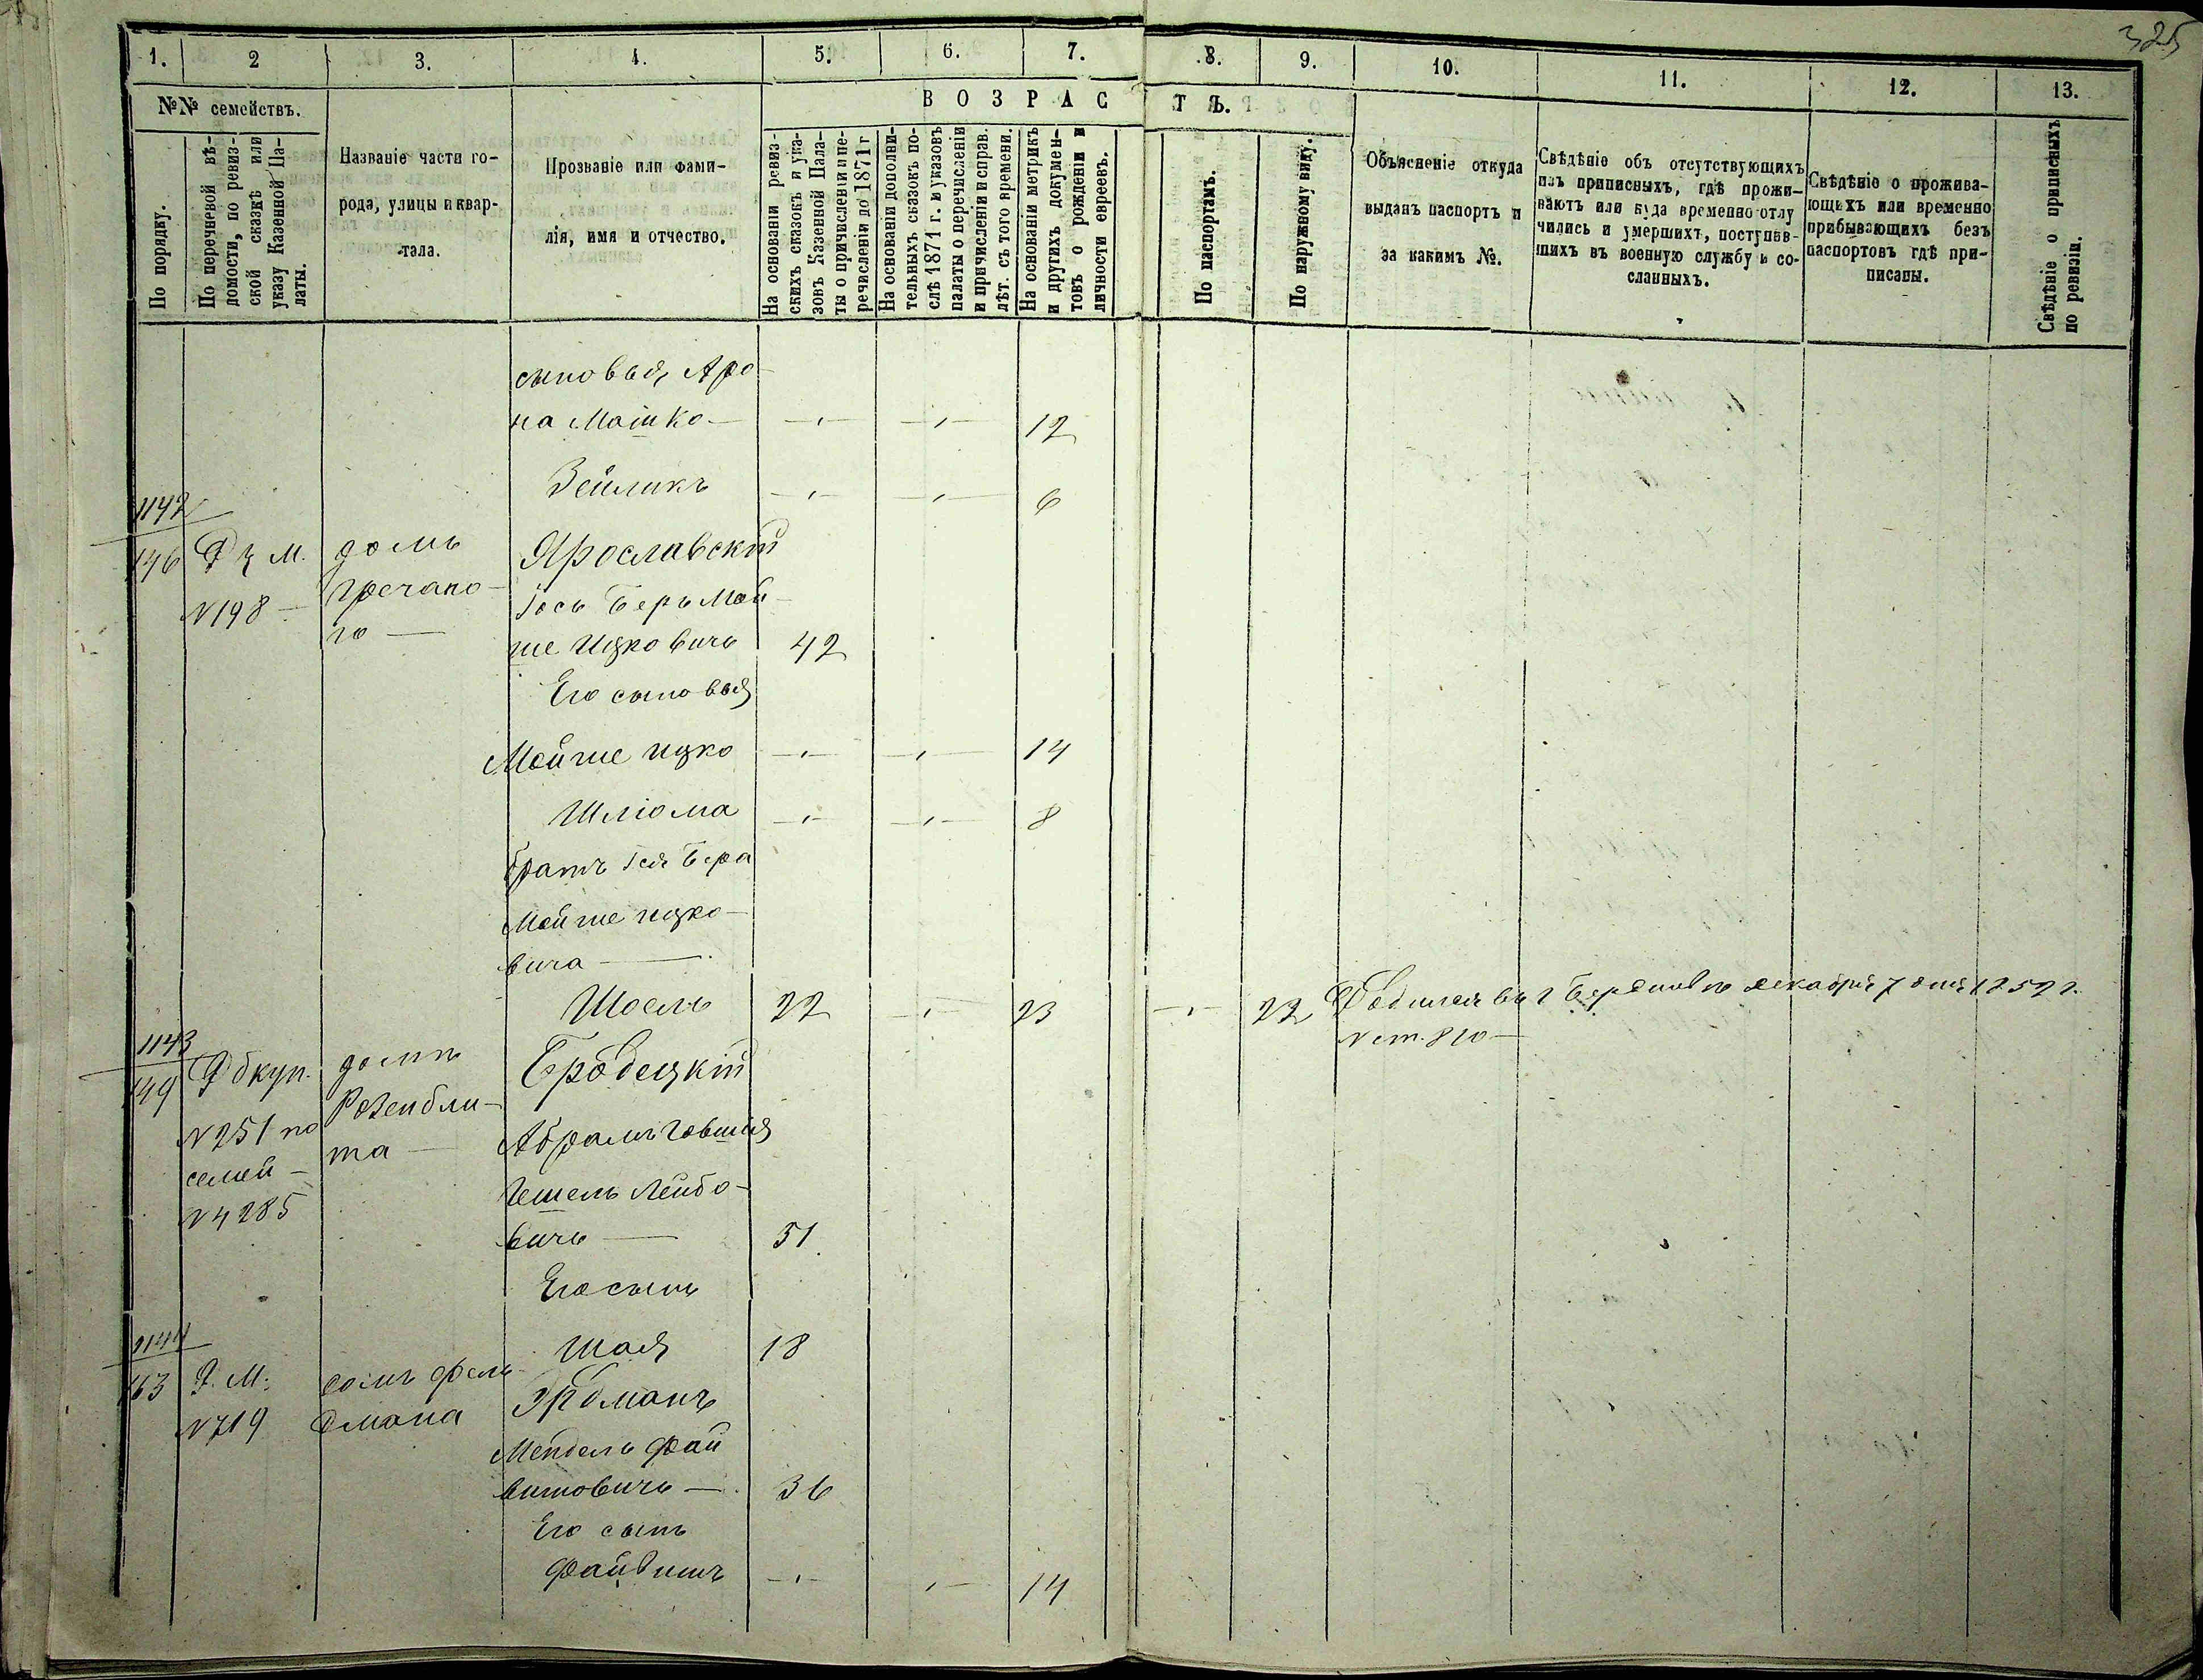 325
1.
2
3.
4.
5.
6.
7.
8.
9.
10.
11.
12.
13.
№№ семействъ.
ВОЗРАС
ТЪ.
По порядку.
По перечневой вѣ-
домости, по ревиз-
ской сказкѣ или
указу Казенной Па-
латы.
Названіе части го-
рода, улицы и квар-
тала.
Прозваніе или фами-
лія, имя и отчество.
На основаніи ревиз-
скихъ сказокъ и ука-
зовъ Казенной Пала-
ты о причисленіи и пе-
речисленіи до 1871 г
На основаніи дополни-
тельныхъ сказокъ по-
слѣ 1871 г. и указовъ
палаты о перечисленіи
и причисленіи и справ.
лѣт. съ того времени.
На основаніи метрикъ
и другихъ докумен-
товъ о рожденіи и
личности евреевъ.
По паспортамъ.
По наружному виду.
Объясненіе откуда
выданъ паспортъ и
за какимъ №.
Свѣдѣніе объ отсутствующихъ
изъ приписныхъ, гдѣ прожи-
ваютъ или куда временно отлу
чились и умершихъ, поступив-
шихъ въ военную службу и со-
сланныхъ.
Свѣдѣніе о прожива-
ющихъ или временно
прибывающихъ безъ
паспортовъ гдѣ при-
писаны.
Свѣдѣніе о приписныхъ
по ревизіи.
сыновья, Аро-
на Мошко —
12
Зейликъ
6
1142
146
М.
№198 —
домъ
Гречано-
го —
Ярославскій
Іось Беръ Мой-
ше Ицковичъ 42
Его сыновья
Мойше Ицко 14
Шлiома 8
братъ Іося Бера
Мойше Ицко-
вича —
Шоель 22 23 22
декабря 7 дня 1852 г.
№ ст. 810 —
1143
149
куп.
№251 по
семей-
№4285
домъ
Розенбли-
та —
Бродецкій
Абрамъ Іовшія
Гешель Лейбо-
вичъ — 51
Его сынъ
Шая 18
1144
163
М.
№719
домъ Фель
дмана
Эрдманъ
Мендель Фай
вишовичъ — 36
Его сынъ
Файвишъ 14